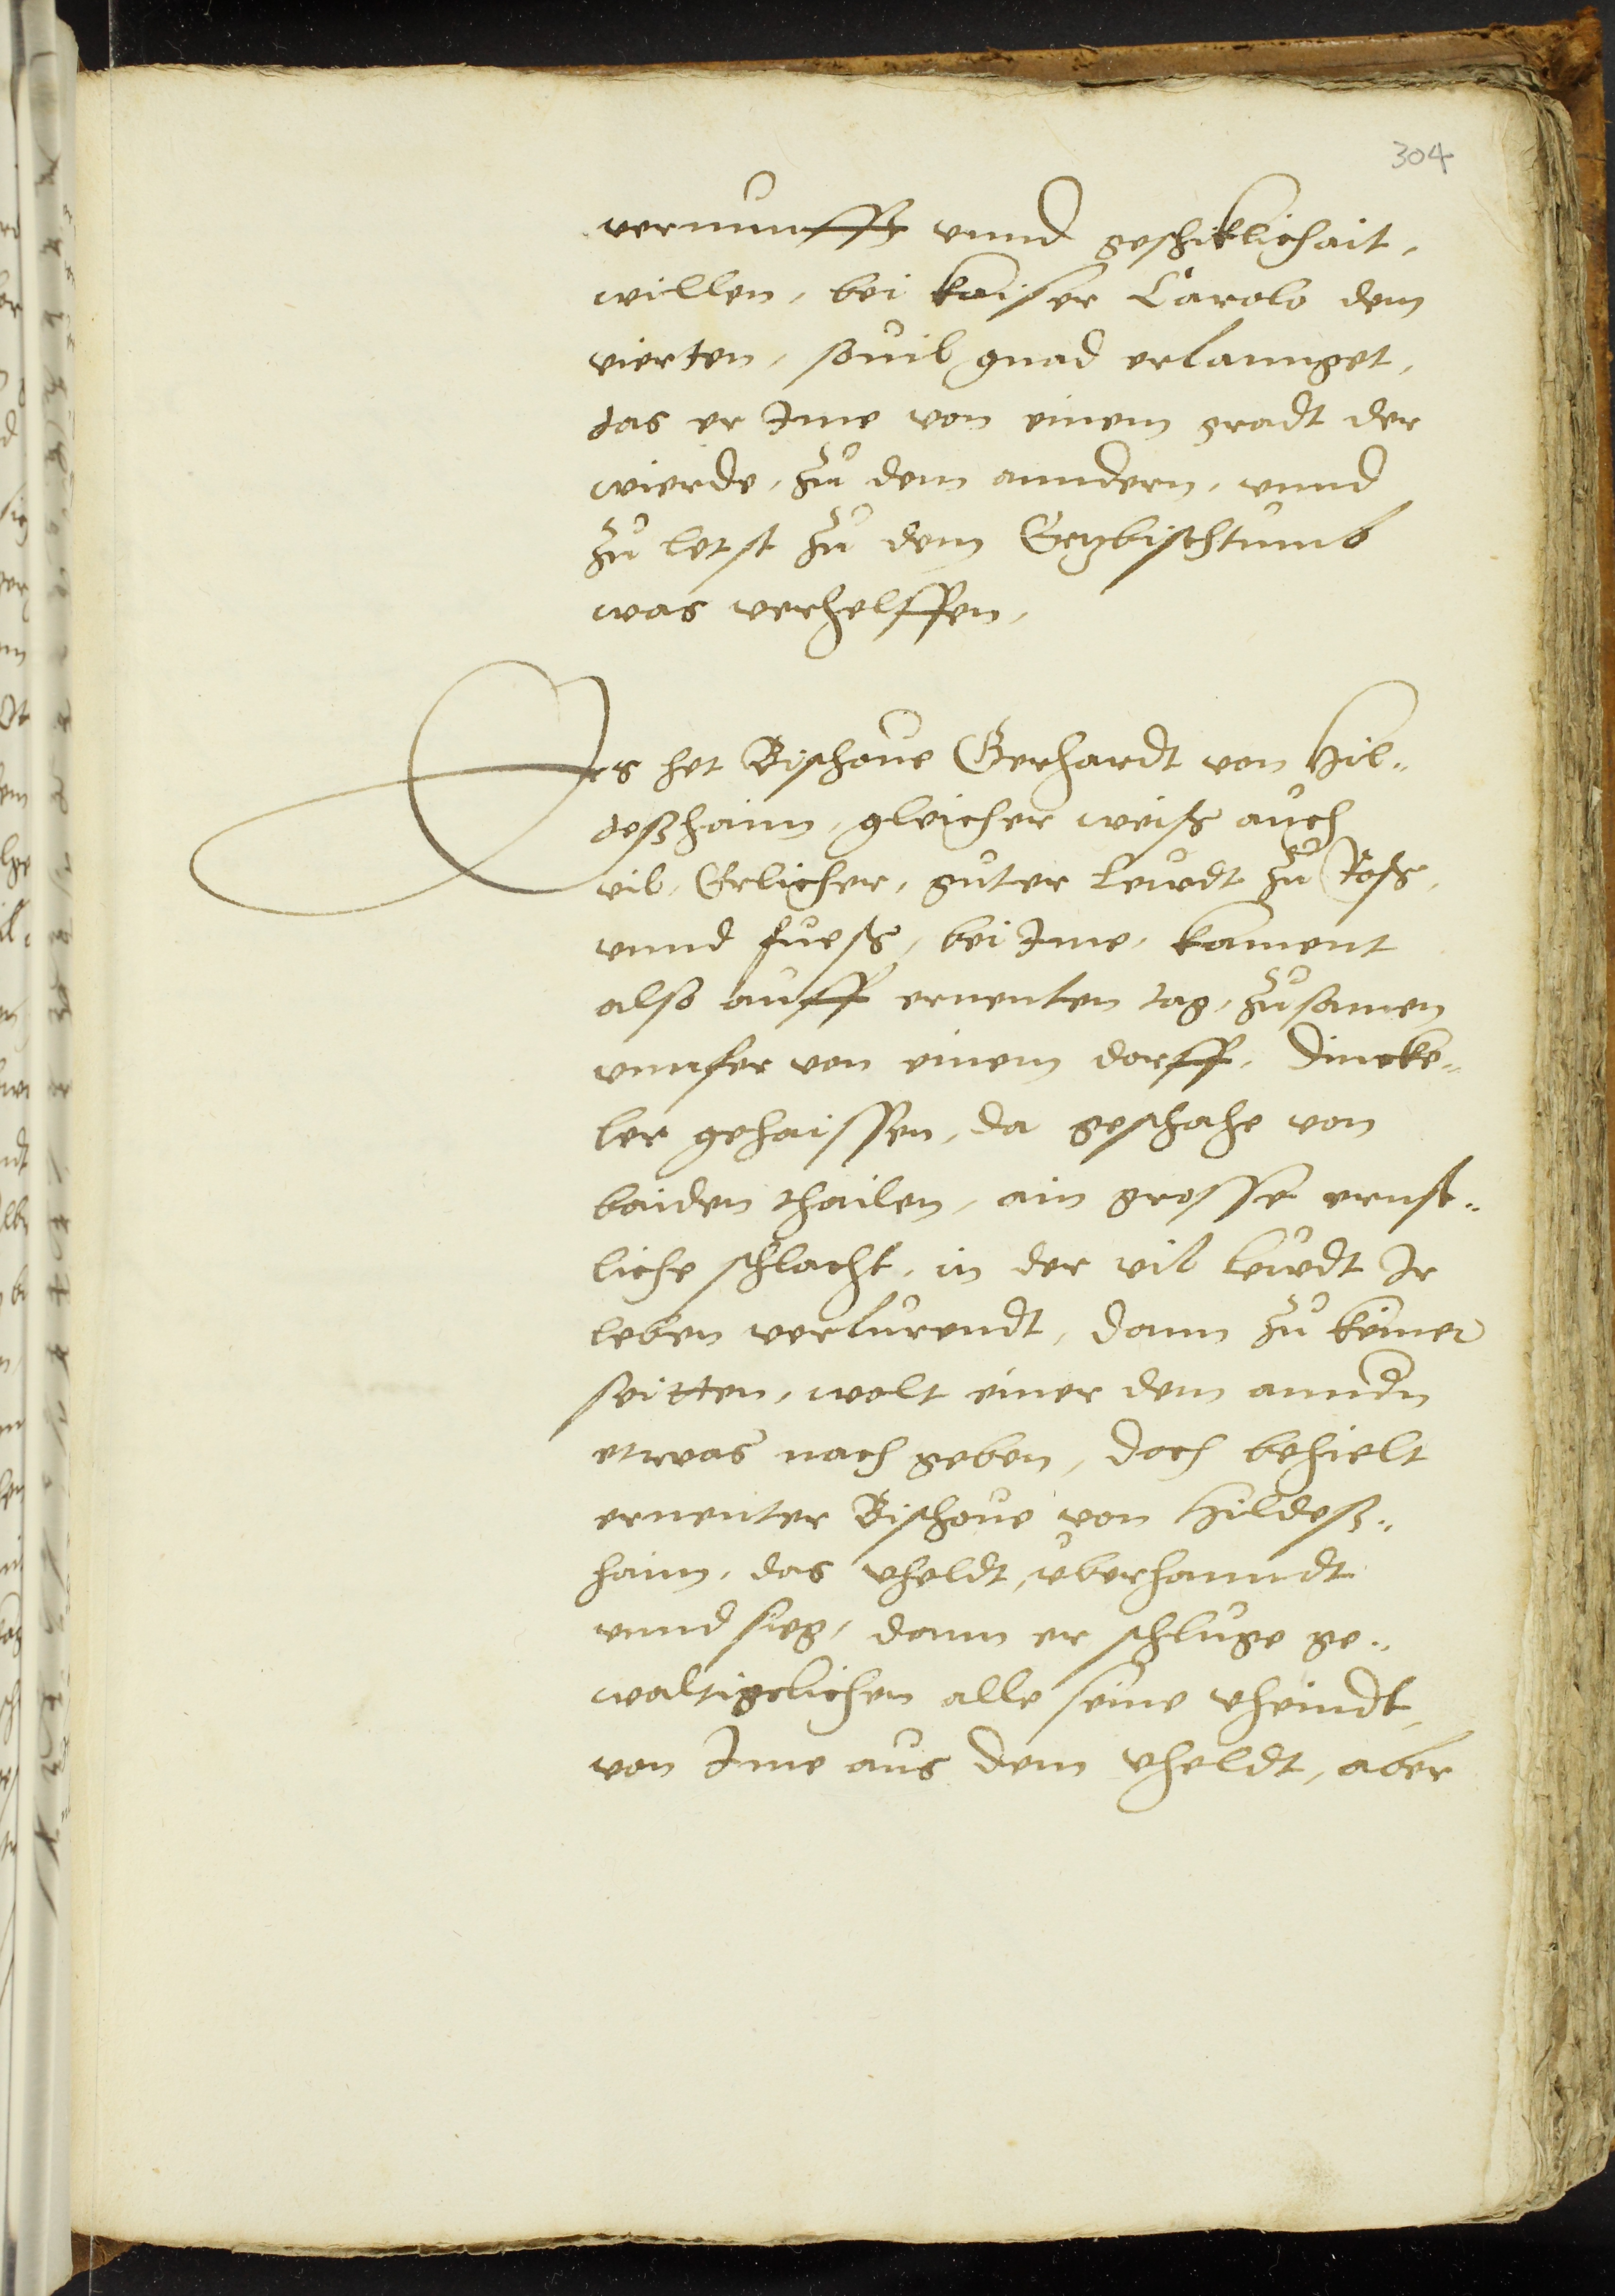 304
vernunfft vnnd geschiklichait,
willen, bei kaiser Carolo dem
vierten, souil gnad erlannget,
das er Ime von einem gradt der
wierde, zu dem anndern, vnnd
zu letst zu dem Ertzbischtumb
was verhelffen,
Es het Bischoue Gerhardt von Hil„
deßhaim, gleicher weiß auch
vil, Erlicher, guter Leuwdt zu Roß,
vnnd fueß, bei Ime, kament
also auff ernenten tag, zusamen
vnnfer von einem dorff, Dincke„
ler gehaissen, da geschahe von
baiden thailen, ain grosse ernst„
liche schlacht, in der vil leuwdt Ir
leben verlurendt, dann zu keiner
seitten, wolt einer dem anndn
etwas nach geben, doch behielt
ernenter Bischoue von Hildeß„
haim, das vheldt, vberhanndt
vnnd sieg, dann er schluge ge„
waltigclichen alle seine vheindt,
von Ime aus dem vheldt, aber